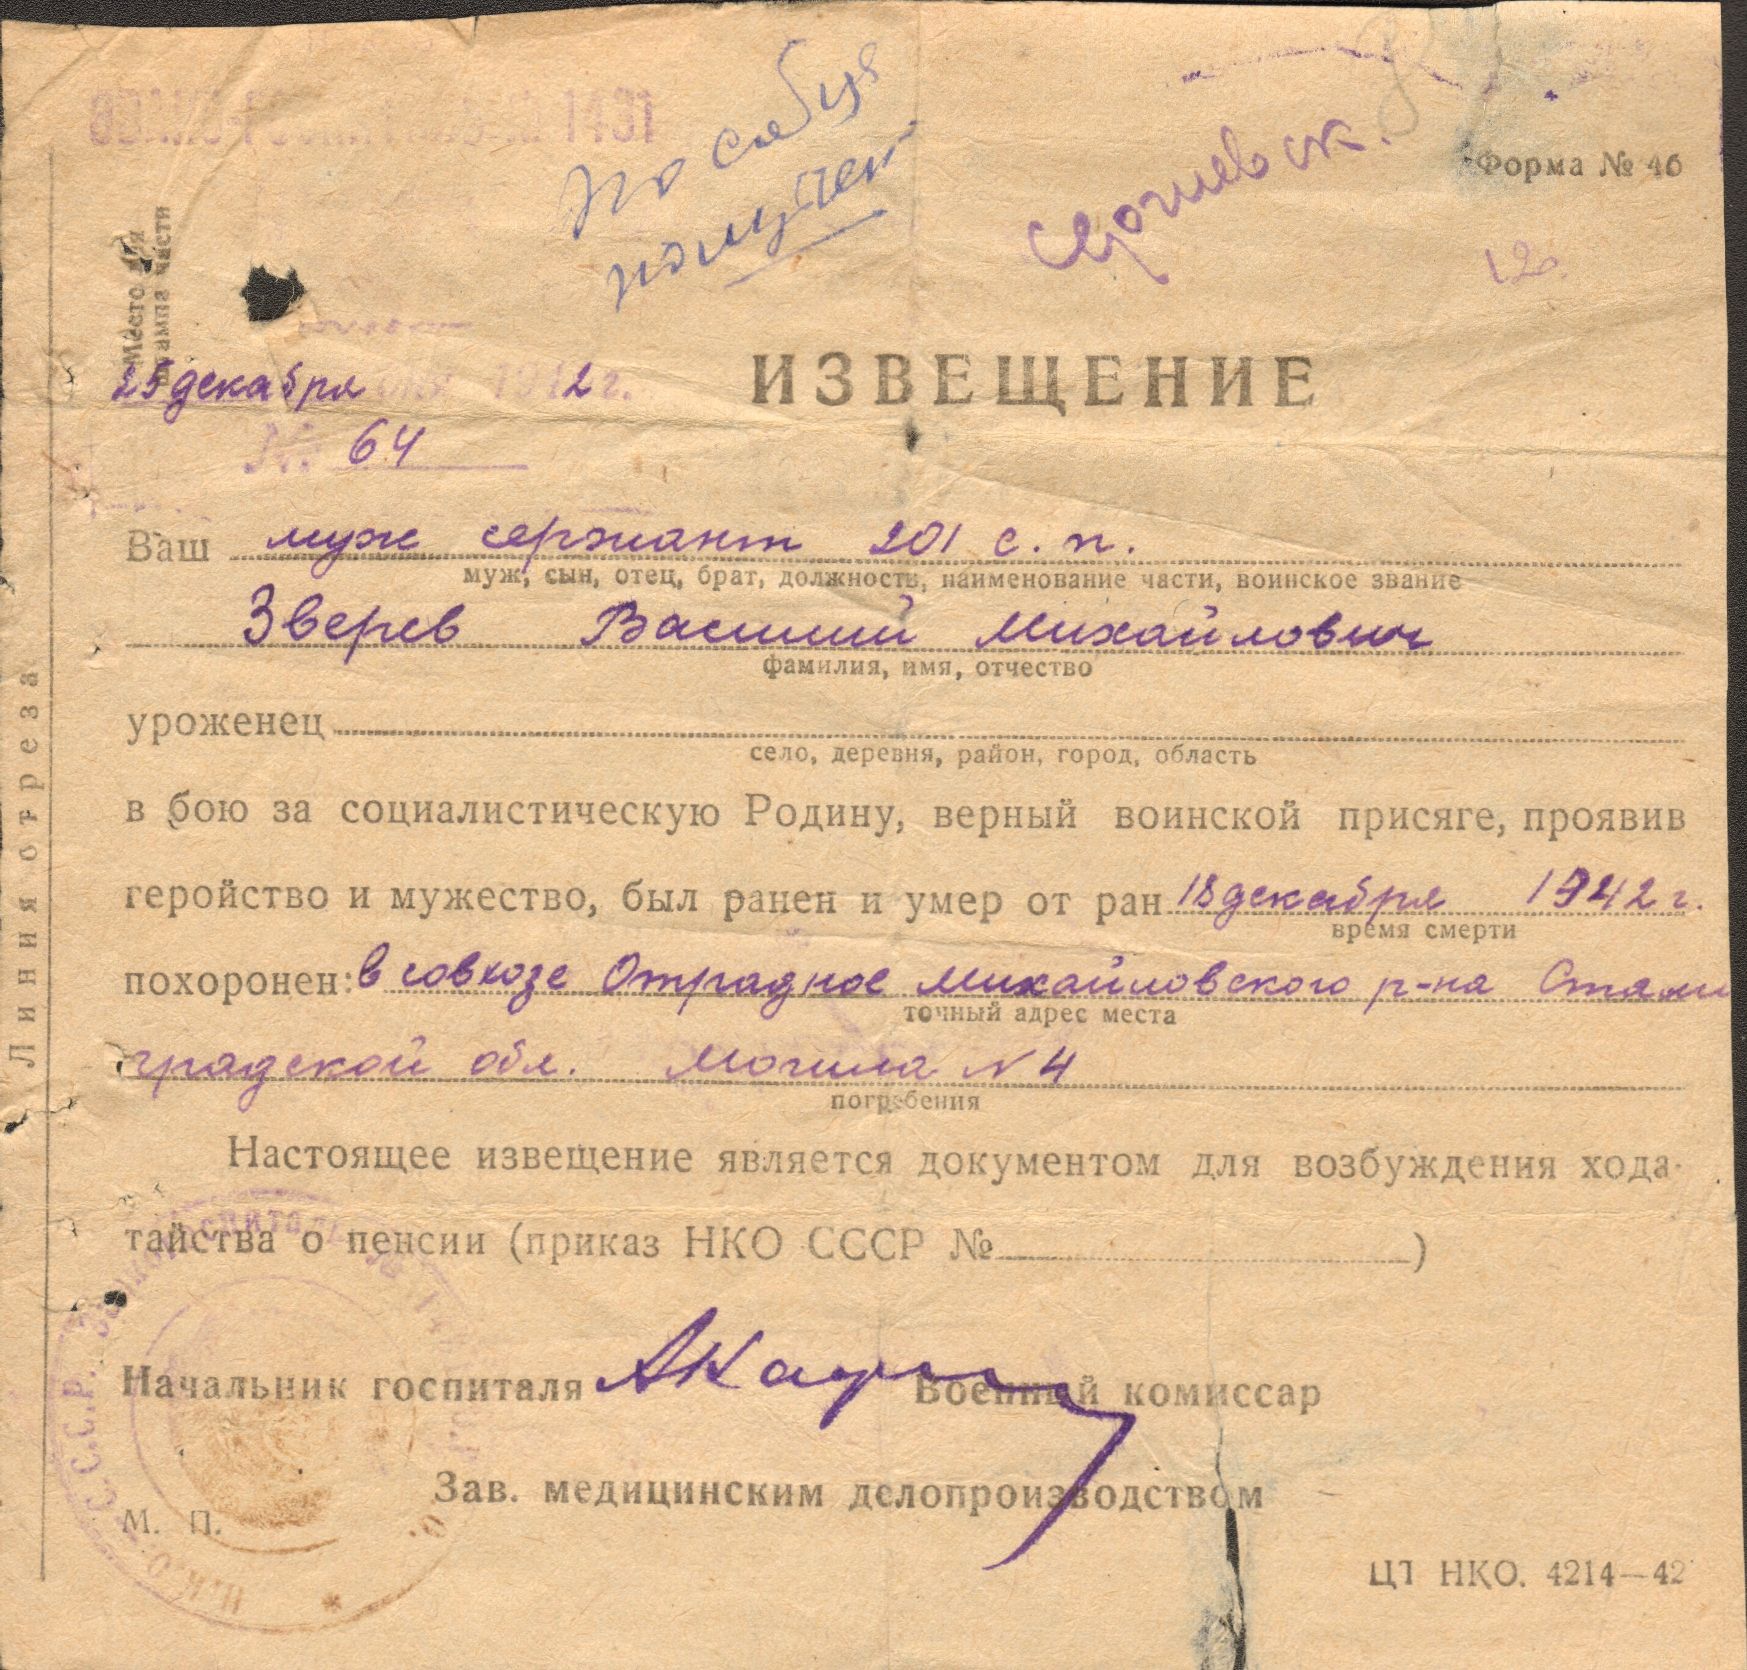 1431
пособия
получен
Сергиевск.
Форма № 46
12
Место для
штампа части
25 декабря 1942 г.
ИЗВЕЩЕНИЕ
№ 64
Ваш муж сержант 201 с. п.
муж, сын, отец, брат, должность, наименование части, воинское звание
Зверев Василий Михайлович
фамилия, имя, отчество
уроженец
село, деревня, район, город, область
в бою за социалистическую Родину, верный воинской присяге, проявив
геройство и мужество, был ранен и умер от ран 18 декабря 1942 г.
время смерти
похоронен: в совхозе Отрадное Михайловского р-на Стали
точный адрес места
градской обл. могила N 4
погребения
Настоящее извещение является документом для возбуждения хода-
тайства о пенсии (приказ НКО СССР № )
Начальник госпиталя Военный комиссар
Зав. медицинским делопроизводством
М. П.
ЦТ НКО. 4214—42
Линия отреза
Н.К.О. С.С.С.Р.